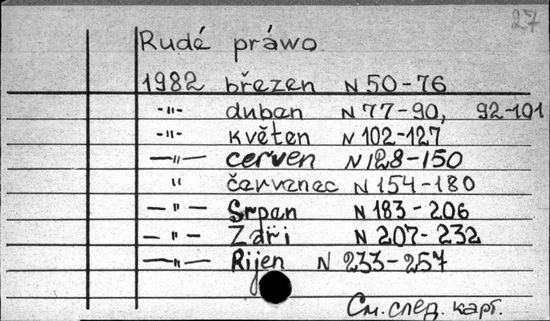 27
Rudé práwo
1982 březen N 50-76
-"- duben N 77-90, 92-101
-"- květen N 102-127
-"- červen N 128-150
" červenec N 154-180
-"- Srpan N 183-206
-"- Září N 207-232
-"- Rijen N 233-257
См. след. карт.